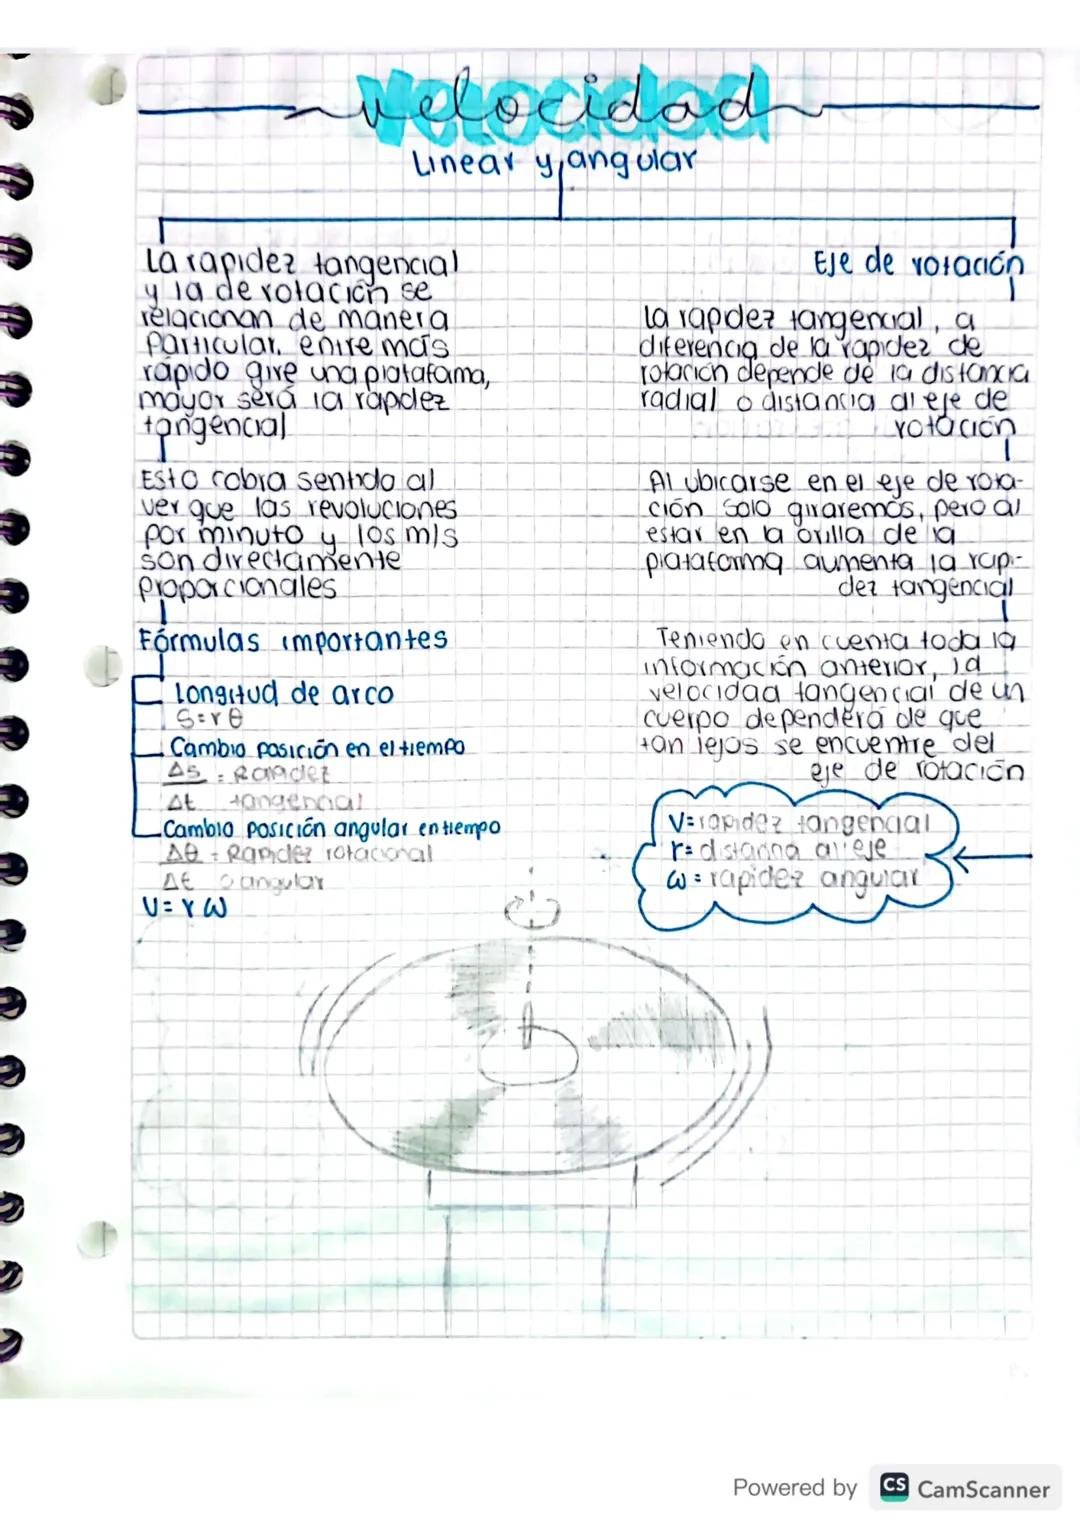 velocidad
Linear y angular
La rapidez tangencial
y la de rotación se
relacionan de manera
particular. entre más
rápido gire una plataforma,
mayor será la rapidez
tangencial
Esto cobra sentido al
ver que las revoluciones
por minuto y los m/s
son directamente
proporcionales
Fórmulas importantes
Longitud de arco
S=rθ
Cambio posición en el tiempo
Δs = Rapidez
Δt tangencial
Cambio posición angular en tiempo
Δθ = Rapidez rotacional
Δt o angular
V=rω
Eje de rotación
La rapidez tangencial, a
diferencia de la rapidez de
rotación depende de la distancia
radial o distancia al eje de
rotación
Al ubicarse en el eje de rota-
ción solo giraremos, pero al
estar en la orilla de la
plataforma aumenta la rapi-
dez tangencial
Teniendo en cuenta toda la
información anterior, la
velocidad tangencial de un
cuerpo dependerá de que
tan lejos se encuentre del
eje de rotación
V=rapidez tangencial
r=distancia al eje
ω=rapidez angular
Powered by CS CamScanner